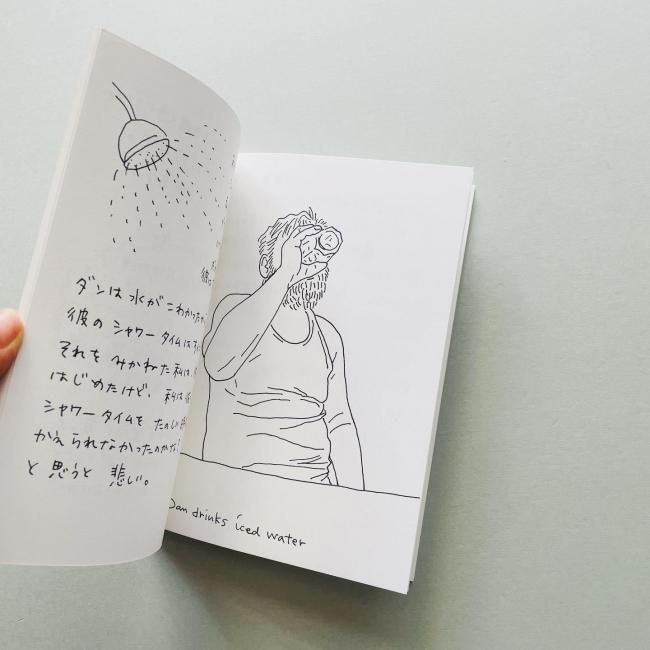 彼に
ダンは水がこわかった
彼のシャワータイムは
それをみかねた私は、
はじめたけど、私は
シャワータイムをたのしい
かえられなかったのかな
と思うと悲しい。
Dan drinks iced water